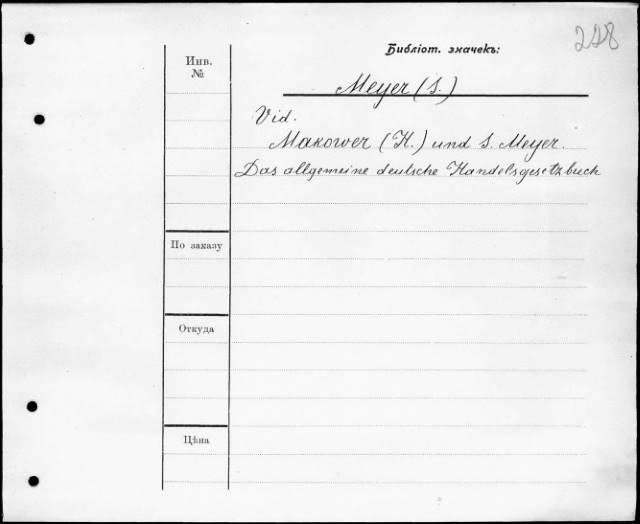 228
Библіот. значекъ:
Инв.
№
Meyer (S.)
Vid.
Makower (H.) und S. Meyer.
Das allgemeine deutsche Handelsgesetzbuch
По заказу
Откуда
Цѣна